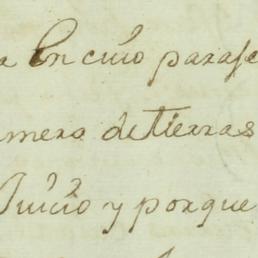 a En cuio paraje
mera de tierras
Juicio y porque